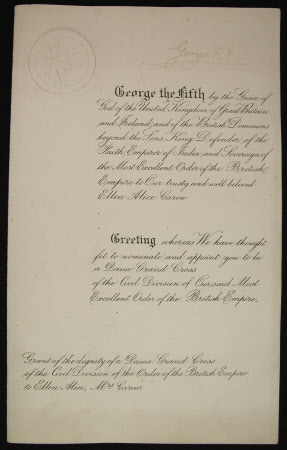 George R.I.
George the Fifth by the Grace of
God of the United Kingdom of Great Britain
and Ireland and of the British Dominions
beyond the Seas King Defender of the
Faith, Emperor of India and Sovereign of
the Most Excellent Order of the British
Empire to Our trusty and well beloved
Ellen Alice Carew
Greeting whereas We have thought
fit to nominate and appoint you to be
a Dame Grand Cross
of the Civil Division of Our said Most
Excellent Order of the British Empire,
Grant of the dignity of a Dame Grand Cross
of the Civil Division of the Order of the British Empire
to Ellen Alice, Mrs Carew